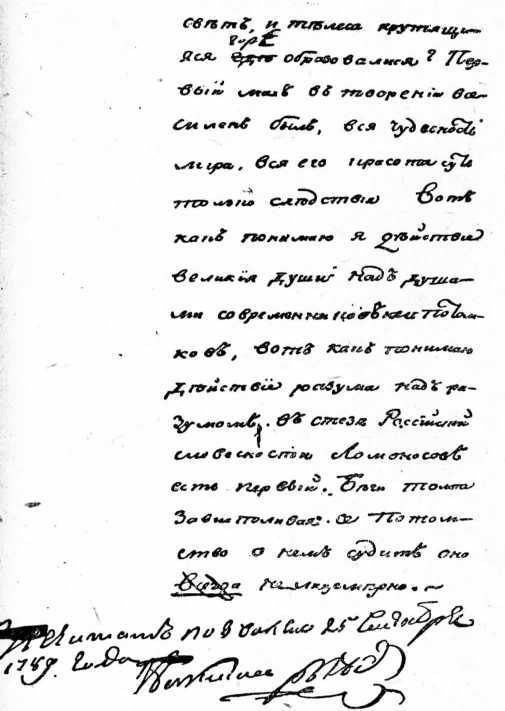 свѣтъ, и тѣлеса крутящи-
горѣ
яся образовалися? Пер-
вый махъ въ творенiи все-
силенъ былъ, вся чудесность
мира, вся его красота суть
только слѣдствiи Вотъ
какъ понимаю я дѣйствiе
великiя души надъ душа-
ми современниковъ или потом-
ковъ, вотъ какъ понимаю
дѣйствiе разума надъ ра-
зумомъ. въ стезѣ Россiйской
словесности Ломоносовъ
есть первый. Бѣги толпа
завистливая: се Потом-
ство о немъ судитъ оно
нелицемѣрно.
по 25 Сентября
1789. года